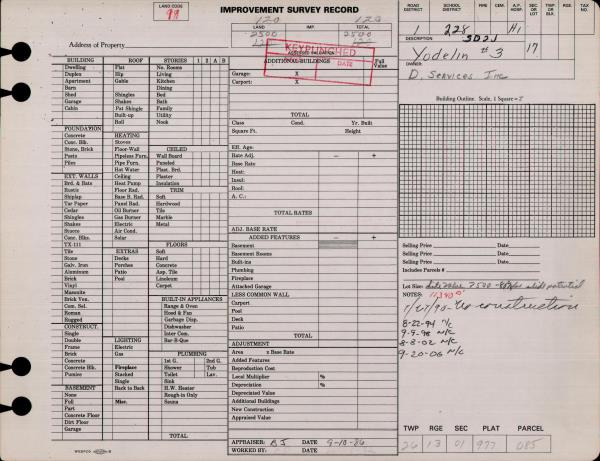 LAND CODE
99
IMPROVEMENT SURVEY RECORD
120 120
LAND IMP. TOTAL
2500 2500
120 120
Address of Property
ASSESSED VALUATION
KEYPUNCHED
DATE
ROAD DISTRICT SCHOOL DISTRICT FIRE CEM. A.P. HOSP. SEC. OR LOT RGE. TAX NO.
1 228 H1
DESCRIPTION SD2J
Yodelin #3 17
OWNER
D. Services Inc
BUILDING ROOF STORIES 1 2 A B
Dwelling Flat No. Rooms
Duplex Hip Living
Apartment Gable Kitchen
Barn Dining
Shed Shingles Bed
Garage Shakes Bath
Cabin Pat Shingle Family
Built-up Utility
Roll Nook
FOUNDATION
Concrete HEATING
Conc. Blk. Stoves CEILED
Stone, Brick Floor-Wall Wall Board
Posts Pipeless Furn. Paneled
Piles Pipe Furn. Plast. Brd.
Hot Water Plaster
EXT. WALLS Ceiling Insulation
Brd. & Bats Heat Pump TRIM
Rustic Floor Rad. Soft
Shiplap Base B. Rad. Hard
Tar Paper Panel Rad. Hardwood
Cedar Oil Burner Tile
Shingles Gas Burner Marble
Shakes Electric Metal
Stucco Air Cond.
Conc. Blks. Solar
TX-111 FLOORS
Tile EXTRAS Soft
Stone Decks Hard
Galv. Iron Porches Concrete
Aluminum Patio Asp. Tile
Brick Pool Linoleum
Vinyl Carpet
Masonite
Brick Ven. BUILT-IN APPLIANCES
Com. Sel. Range & Oven
Roman Hood & Fan
Rugged Garbage Disp.
CONSTRUCT. Dishwasher
Single Inter Com.
Double LIGHTING Bar-B-Que
Frame Electric
Brick Gas PLUMBING
Concrete 1st G. 2nd G.
Concrete Blk. Fireplace Shower Tub
Pumice Stacked Toilet Lav.
Single Sink
BASEMENT Back to Back H.W. Heater
None Rough-in Only
Full Misc. Sauna
Part
Concrete Floor
Dirt Floor
Garage TOTAL
ADDITIONAL BUILDINGS Full Value
Garage: X
Carport: X
TOTAL
Class Cond. Yr. Built
Square Ft. Height
Eff. Age:
Rate Adj. − +
Base Rate
Heat:
Insul:
Roof:
A. C.:
TOTAL RATES
ADJ. BASE RATE
ADDED FEATURES − +
Basement
Basement Rooms
Built-ins
Plumbing
Fireplace
Attached Garage
LESS COMMON WALL
Carport
Pool
Deck
Patio
TOTAL
ADJUSTMENT
Area x Base Rate
Added Features
Reproduction Cost
Local Multiplier %
Depreciation %
Depreciated Value
Additional Buildings
New Construction
Appraised Value
APPRAISER: BJ DATE 9-10-86
WORKED BY:
Building Outline. Scale, 1 Square = 2'
Selling Price Date
Selling Price Date
Selling Price Date
Includes Parcels #
Lot Size: 2500 slide potential
NOTES:
1/27/90 - No construction
8-22-94 N/C
9-9-98 N/C
8-8-02 N/C
9-20-06 N/C
TWP RGE SEC PLAT PARCEL
26 13 01 977 085